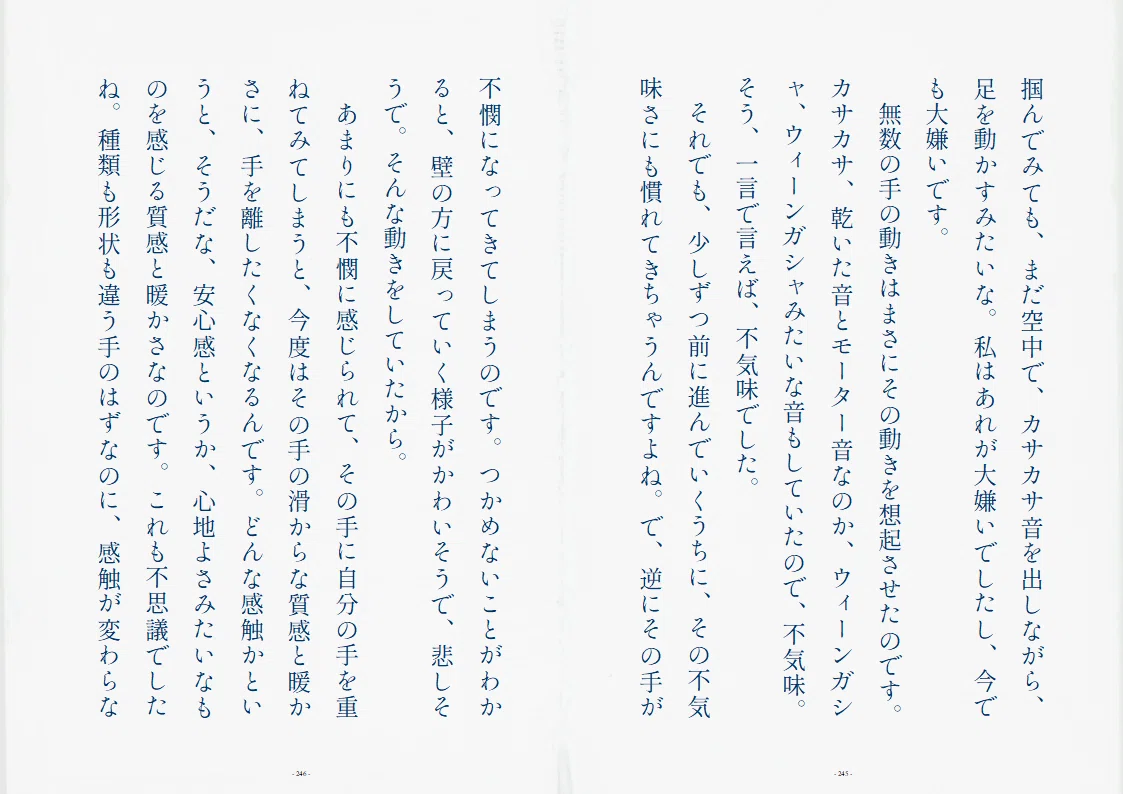 掴んでみても、まだ空中で、カサカサ音を出しながら、
足を動かすみたいな。私はあれが大嫌いでしたし、今で
も大嫌いです。
無数の手の動きはまさにその動きを想起させたのです。
カサカサ、乾いた音とモーター音なのか、ウィーンガシ
ャ、ウィーンガシャみたいな音もしていたので、不気味。
そう、一言で言えば、不気味でした。
それでも、少しずつ前に進んでいくうちに、その不気
味さにも慣れてきちゃうんですよね。で、逆にその手が
- 245 -
不憫になってきてしまうのです。つかめないことがわか
ると、壁の方に戻っていく様子がかわいそうで、悲しそ
うで。そんな動きをしていたから。
あまりにも不憫に感じられて、その手に自分の手を重
ねてみてしまうと、今度はその手の滑からな質感と暖か
さに、手を離したくなくなるんです。どんな感触かとい
うと、そうだな、安心感というか、心地よさみたいなも
のを感じる質感と暖かさなのです。これも不思議でした
ね。種類も形状も違う手のはずなのに、感触が変わらな
- 246 -